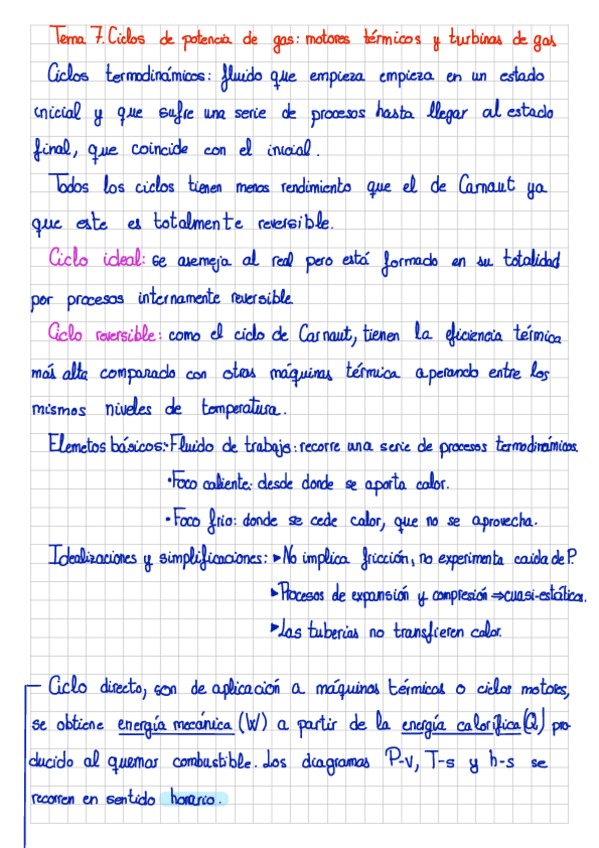 Tema 7. Ciclos de potencia de gas: motores térmicos y turbinas de gas
Ciclos termodinámicos: fluido que empieza empieza en un estado
inicial y que sufre una serie de procesos hasta llegar al estado
final, que coincide con el inicial.
Todos los ciclos tienen menos rendimiento que el de Carnaut ya
que este es totalmente reversible.
Ciclo ideal: se asemeja al real pero está formado en su totalidad
por procesos internamente reversible.
Ciclo reversible: como el ciclo de Carnaut, tienen la eficiencia térmica
más alta comparado con otras máquinas térmica operando entre los
mismos niveles de temperatura.
Elemetos básicos: • Fluido de trabajo: recorre una serie de procesos termodinámicos.
• Foco caliente: desde donde se aporta calor.
• Foco frio: donde se cede calor, que no se aprovecha.
Idealizaciones y simplificaciones: ▸ No implica fricción, no experimenta caida de P.
▸ Procesos de expansión y compresión ⇒ cuasi-estática.
▸ Las tuberias no transfieren calor.
Ciclo directo, son de aplicación a máquinas térmicas o ciclos motores,
se obtiene energía mecánica (W) a partir de la energía calorífica (Q) pro-
ducido al quemar combustible. Los diagramas P-v, T-s y h-s se
recorren en sentido horario.